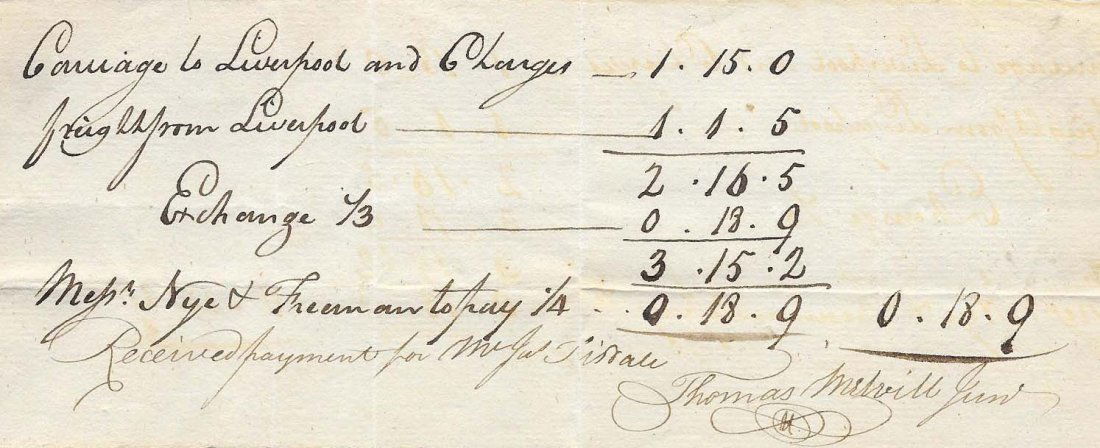 Carriage to Liverpool and Charges — 1. 15. 0
freight from Liverpool — 1. 1. 5
2. 16. 5
Exchange 1/3 — 0. 18. 9
3. 15. 2
Messrs. Nye & Freeman to pay 1/4 .. 0. 18. 9 0. 18. 9
Received payment for Mr Jas Tisdale
Thomas Melvill Junr
M.